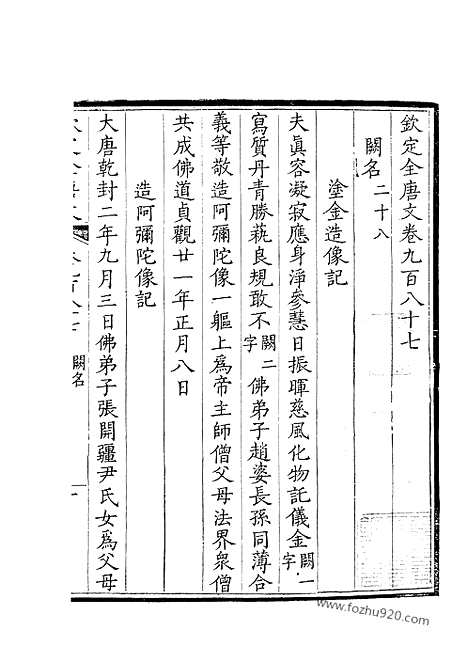 欽定全唐文卷九百八十七
闕名二十八
塗金造像記
夫眞容凝寂應身淨參慧日振暉慈風化物託儀金闕一字
寫質丹青勝蓺良規敢不闕二字佛弟子趙婆長孫同薄合
義等敬造阿彌陀像一軀上爲帝主師僧父母法界衆僧
共成佛道貞觀廿一年正月八日
造阿彌陀像記
大唐乾封二年九月三日佛弟子張開疆尹氏女爲父母
闕名
一
www.fozhu920.com